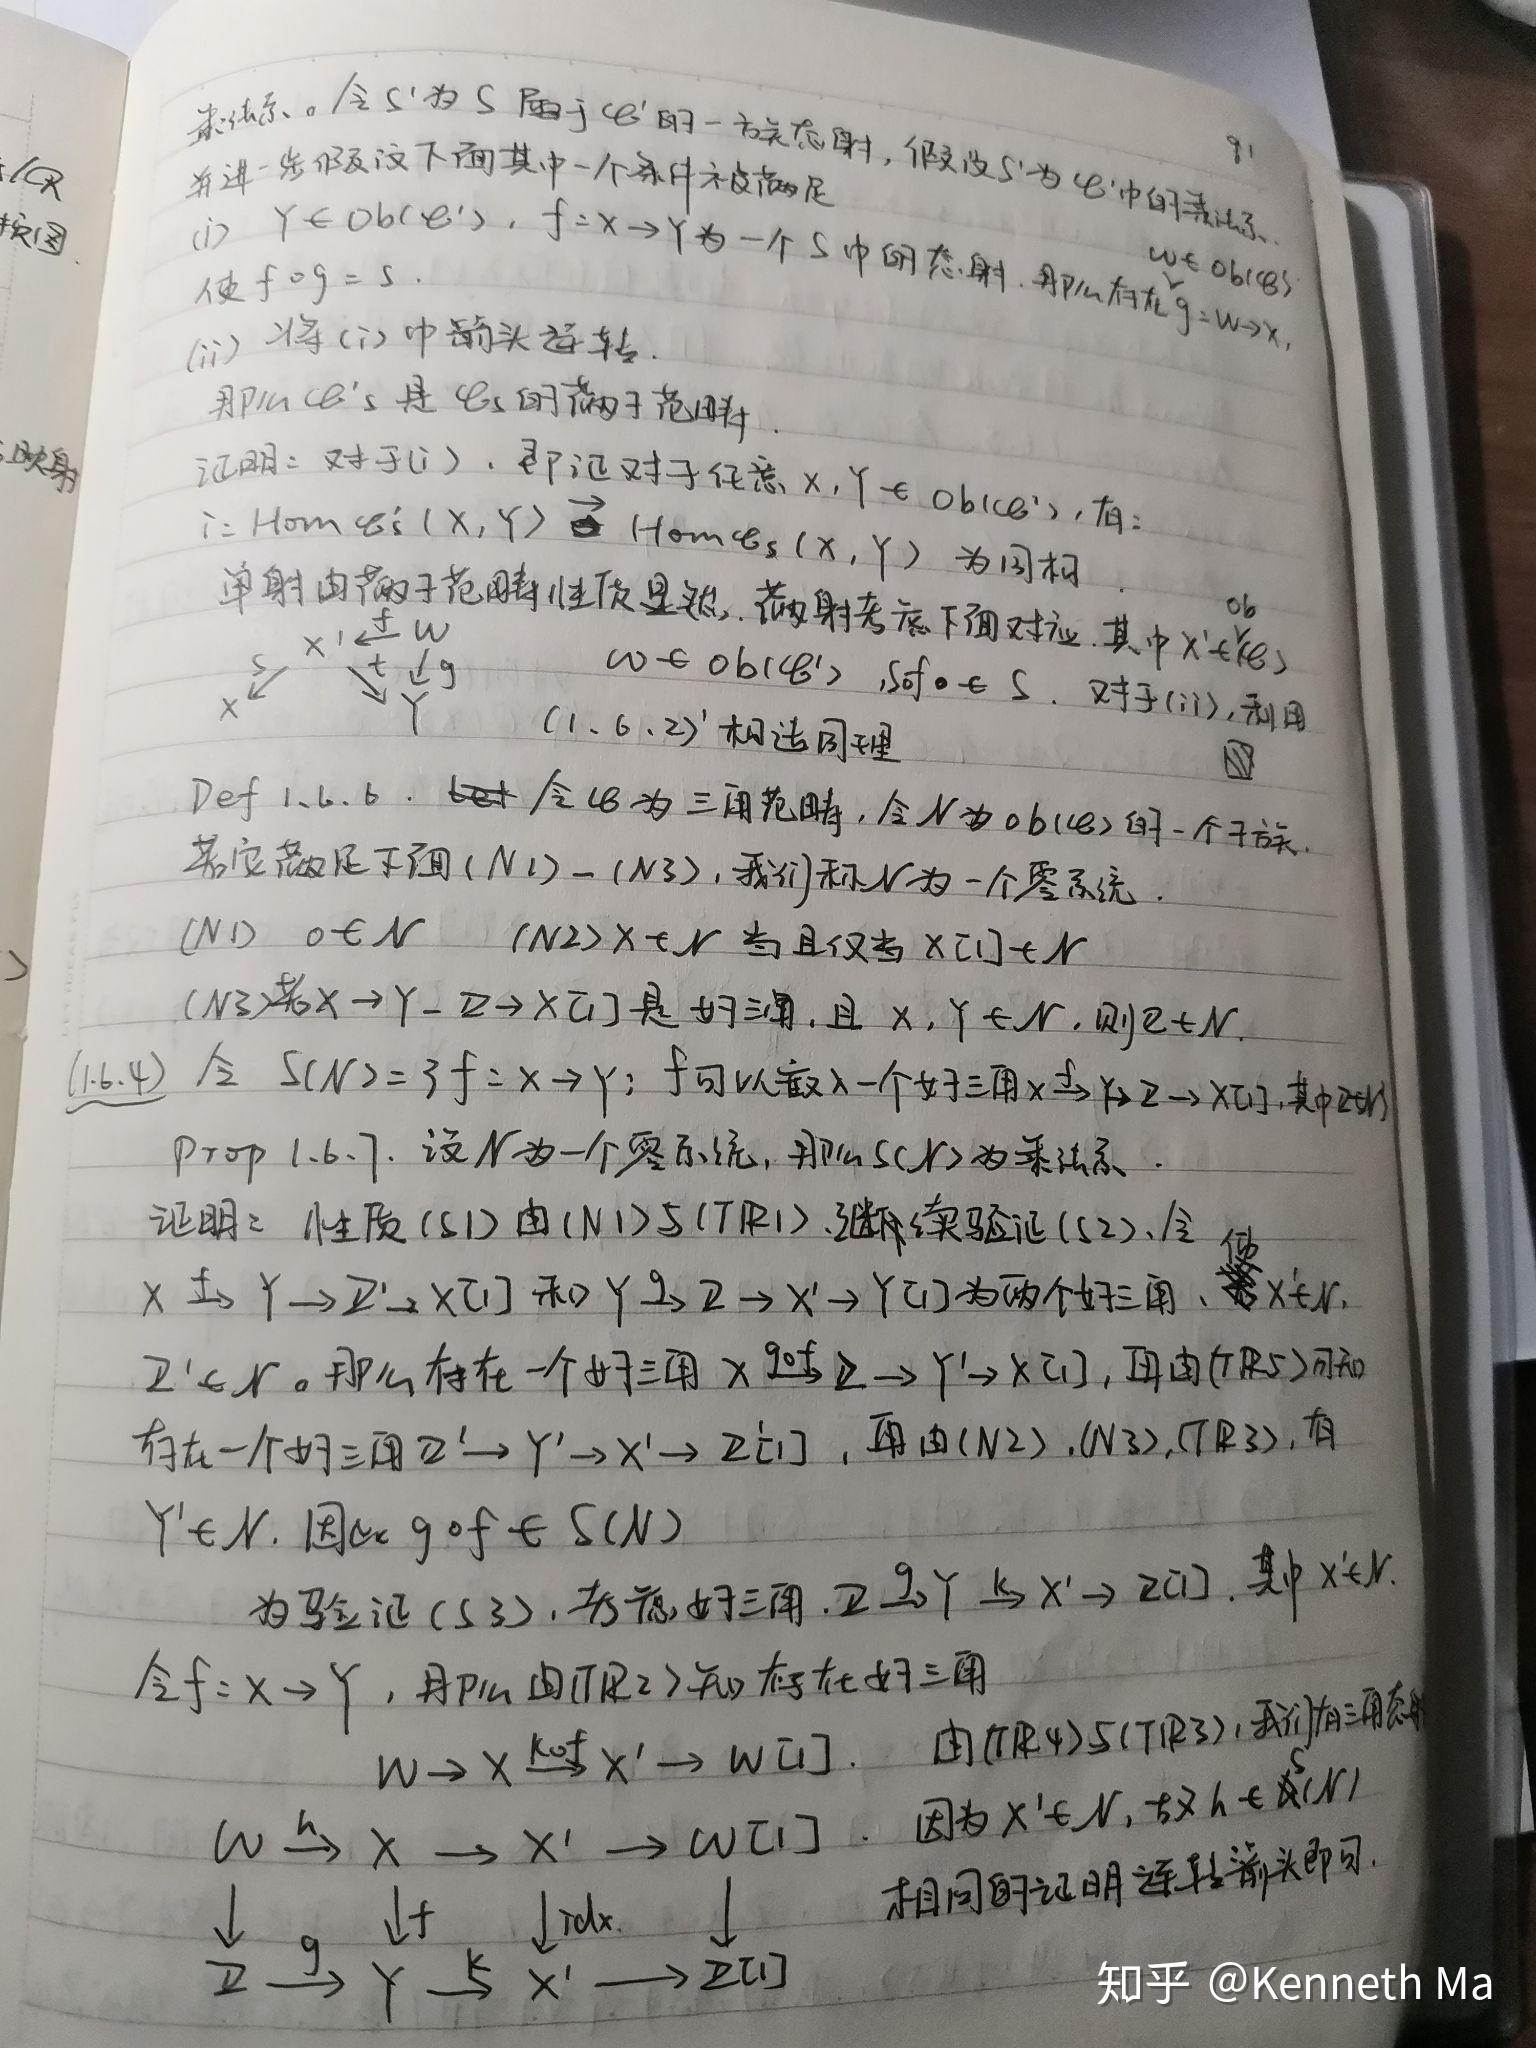 91
乘法系。令S'为S属于𝒞'的一族态射,假设S'为𝒞'中的乘法系、
并进一步假设下面其中一个条件被满足
(i) Y∈Ob(𝒞'),f:X→Y为一个S中的态射.那么存在g:W→X,
W∈Ob(𝒞')
使f∘g=s.
(ii) 将(i)中箭头逆转.
那么𝒞's是𝒞s的满子范畴.
证明:对于(i).即证对于任意X,Y∈Ob(𝒞'),有:
i:Hom𝒞's(X,Y)→Hom𝒞s(X,Y)为同构.
单射由满子范畴性质显然.满射考虑下面对应.其中X'∈Ob(𝒞)
X' ←f W
s t g
X Y
W∈Ob(𝒞'),s∘f∈S.对于(ii),利用
(1.6.2)'构造同理
Def 1.6.6. 令𝒞为三角范畴,令N为Ob(𝒞)的一个子族.
若它满足下面(N1)-(N3),我们称N为一个零系统.
(N1) 0∈N (N2)X∈N当且仅当X[1]∈N
(N3)若X→Y→Z→X[1]是好三角,且X,Y∈N.则Z∈N.
(1.6.4) 令S(N)={f:X→Y;f可以嵌入一个好三角X f→Y→Z→X[1],其中Z∈N}
Prop 1.6.7.设N为一个零系统,那么S(N)为乘法系.
证明:性质(S1)由(N1)与(TR1).继续验证(S2)、令
X f→ Y→Z'→X[1]和Y g→ Z→X'→Y[1]为两个好三角、使X'∈N.
Z'∈N。那么存在一个好三角X g∘f→ Z→Y'→X[1],再由(TR5)可知
存在一个好三角Z'→Y'→X'→Z'[1],再由(N2),(N3),(TR3),有
Y'∈N.因此g∘f∈S(N)
为验证(S3),考虑好三角.Z g→ Y k→ X'→Z[1].其中X'∈N.
令f:X→Y,那么由(TR2)知存在好三角
W→X k∘f→ X'→W[1]. 由(TR4)与(TR3),我们有三角态射
W h→ X → X' → W[1]. 因为X'∈N,故h∈S(N)
↓ ↓f ↓idx' ↓ 相同的证明逆转箭头即可.
Z g→ Y k→ X' → Z[1]
知乎 @Kenneth Ma